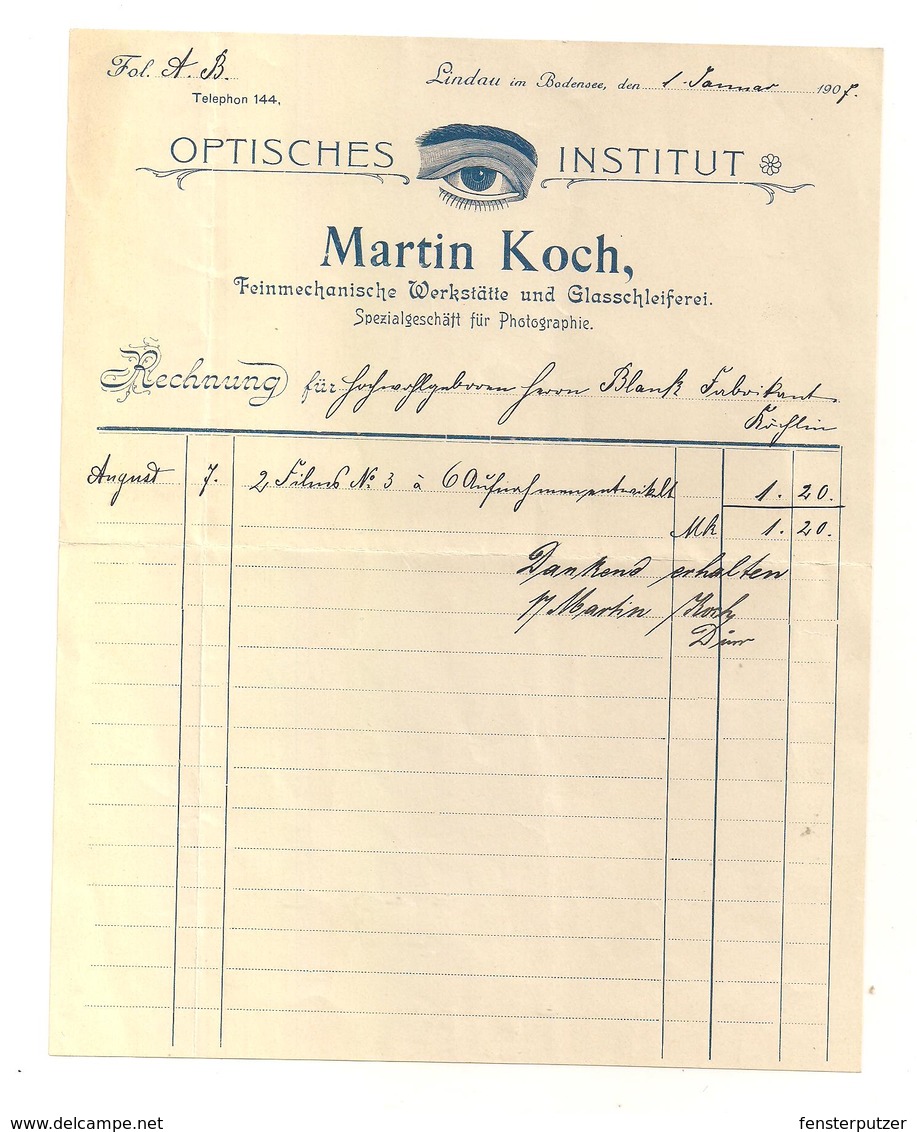 Fol. A. B.
Telephon 144.
Lindau im Bodensee, den 1. Januar 1907.
OPTISCHES INSTITUT
Martin Koch,
Feinmechanische Werkstätte und Glasschleiferei.
Spezialgeschäft für Photographie.
Rechnung für Hochwohlgeboren Herrn Blank Fabrikant
Köchlin
August 7. 2 Films No 3 à 6 Aufnahmen entwikelt 1. 20.
Mk 1. 20.
Dankend erhalten
Martin Koch
delcampe.net
fensterputzer